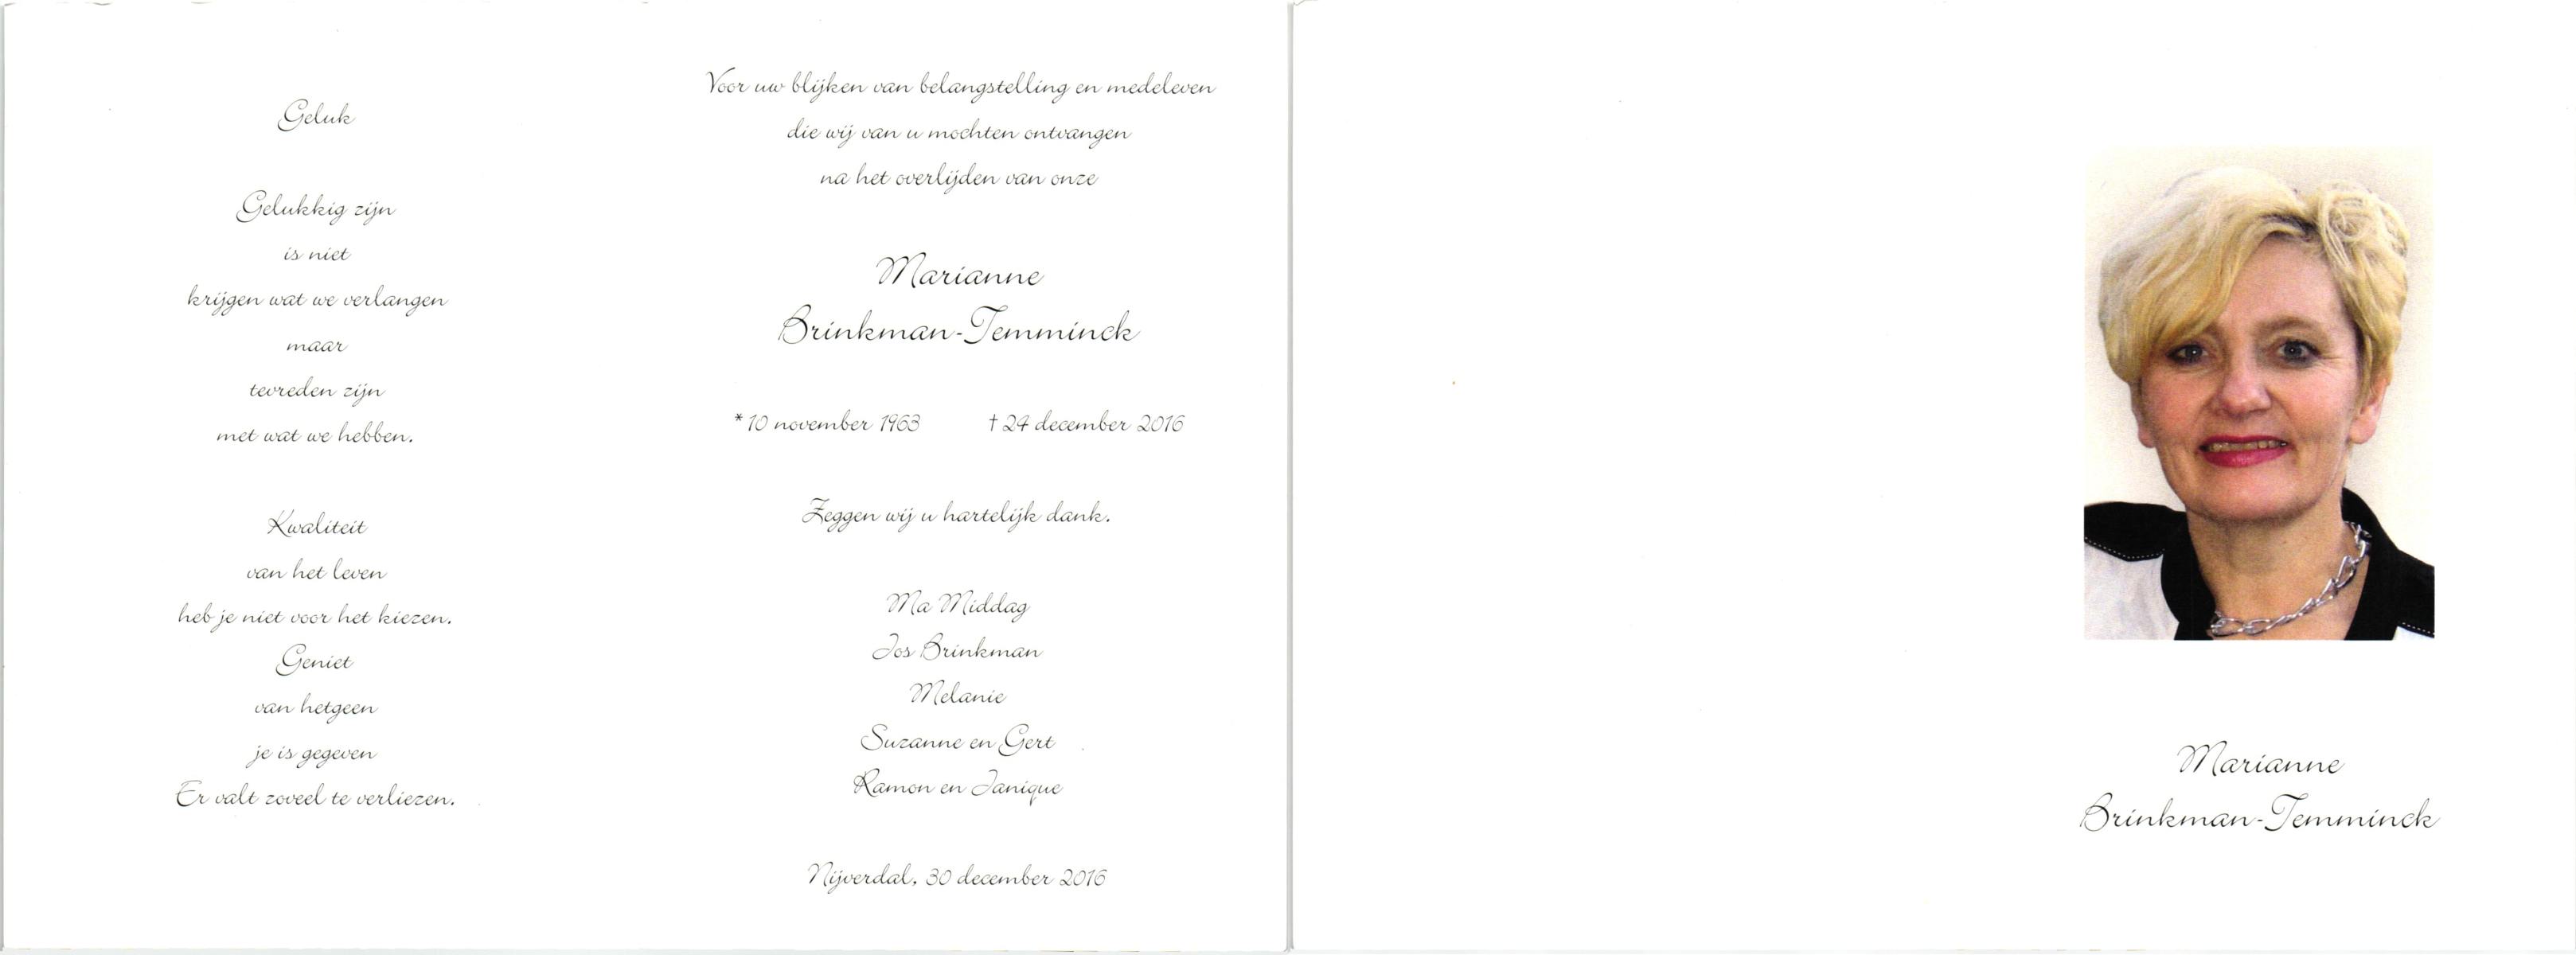 Geluk
Gelukkig zijn
is niet
krijgen wat we verlangen
maar
tevreden zijn
met wat we hebben.
Kwaliteit
van het leven
heb je niet voor het kiezen.
Geniet
van hetgeen
je is gegeven
Er valt zoveel te verliezen.
Voor uw blijken van belangstelling en medeleven
die wij van u mochten ontvangen
na het overlijden van onze
Marianne
Brinkman-Temminck
* 10 november 1963 † 24 december 2016
Zeggen wij u hartelijk dank.
Ma Middag
Jos Brinkman
Melanie
Suzanne en Gert
Ramon en Janique
Nijverdal, 30 december 2016
Marianne
Brinkman-Temminck